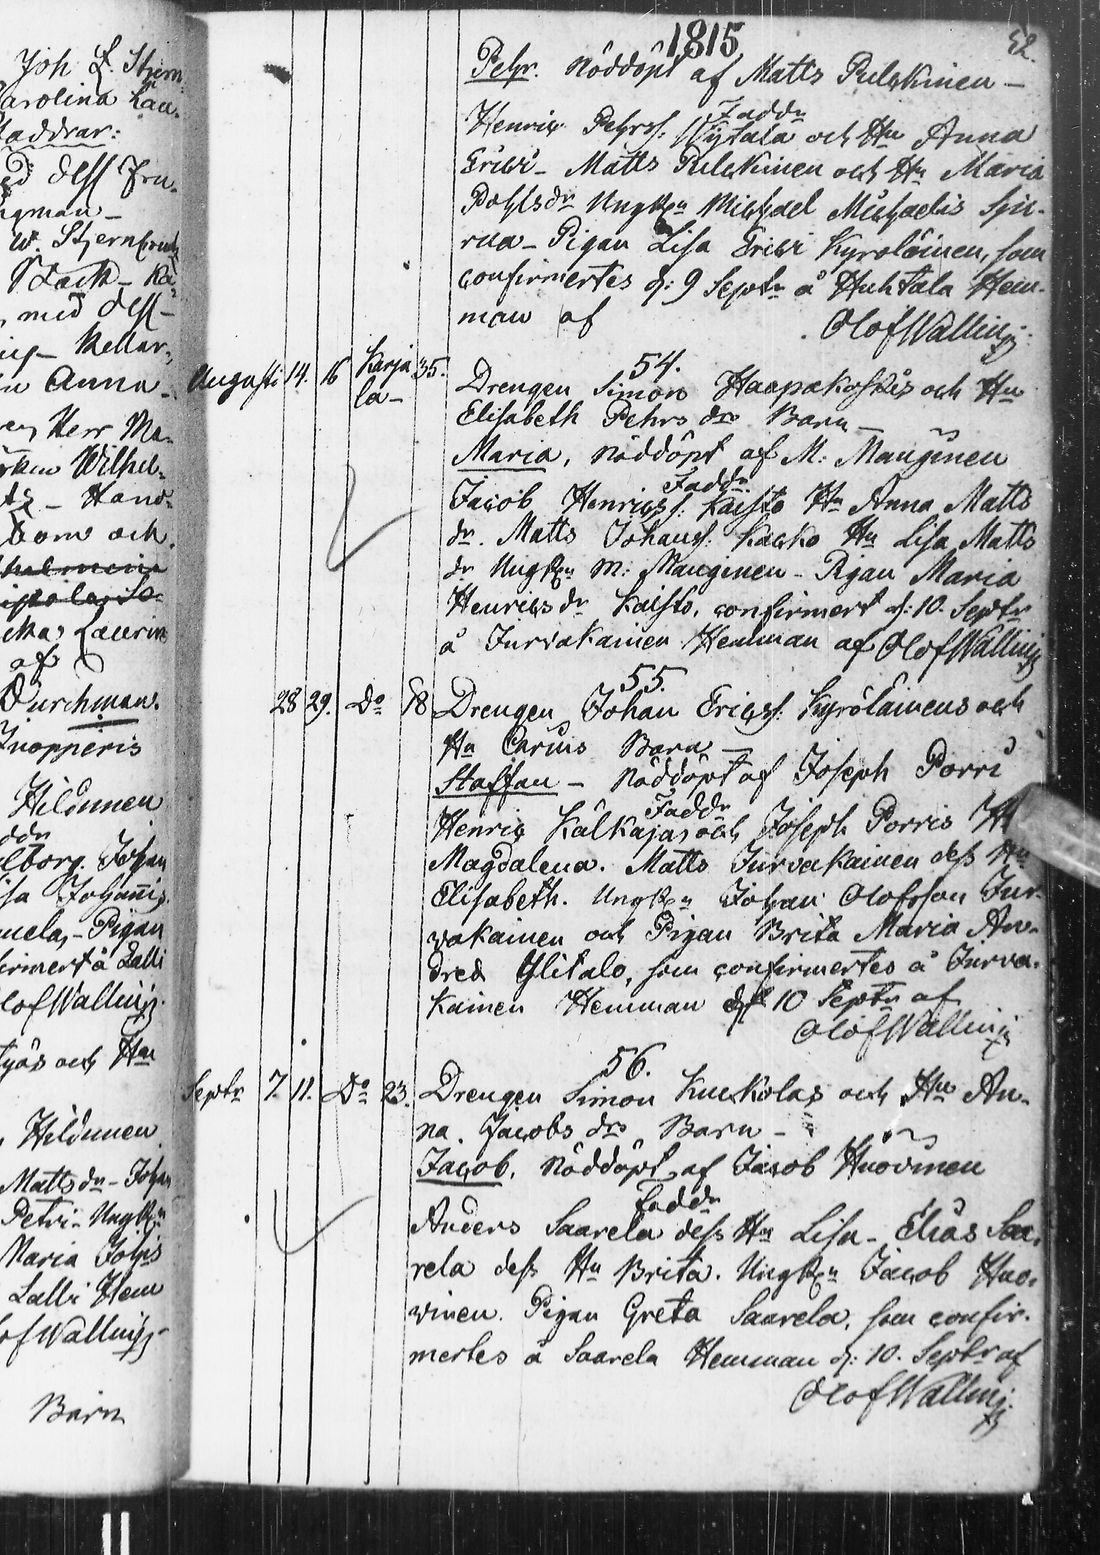 Joh. L. Stjern
Carolina Lau
Faddrar:
med dess Fru
ngman —
W. Stjern
Back —
, med dess —
Kellar
Anna —
Herr Ma
Wilhel
— Hand
Born och
Laurin
af
Burchman.
Knopperis
Hildunen
ddr
elborg. Johan
sa Johannis
Pigan
firmert å Lalli
Olof Walling.
och Hu
, Hildunen
Matts dr — Johan
Petri — Ungk:n
Maria Johs
Lalli Hem
Olof Walling
Barn
1815
52.
Pehr. Nöddöpt af Matts Pulkkinen —
Faddr
Henric Pehrss. och Hu Anna
Erici — Matts Pulkkinen och Hu Maria
Pohlsdr Ungk:n Michael Michaelis Spu-
rua — Pigan Lisa Erici Kyröläinen, som
confirmertes d: 9 Septr å Huhtala Hem-
man af
Olof Walling.
54.
Augusti 14. 16 Karja la — 35. Drengen Simon Haapakoskis och Hu
Elisabeth Pehrs drs Barn —
Maria, nöddöpt af M: Mauginen
Faddr
Jacob Henricss. Kaisto Hu Anna Matts
dr. Matts Johanss. Kacko Hu Lisa Matts
dr Ungk:n M: Mauginen — Pigan Maria
Henrics dr Kaisto, confirmert d: 10. Septr
å Jurvakainen Hemman af Olof Walling
55.
28 29. Do 18 Drengen Johan Ericss. Kyröläinens och
Hu Carins Barn —
Staffan — Nöddöpt af Joseph Porri
Faddr
Henric Kälkäjas och Joseph Porris H
Magdalena. Matts Jurvakainen dess Hu
Elisabeth. Ungk:n Johan Olofsson Jur-
vakainen och Pigan Brita Maria An-
drea Ylitalo, som confirmertes å Jurva-
kainen Hemman d: 10 Septr af
Olof Walling
56.
Septr 7. 11. Do 23. Drengen Simon Kuckolas och Hu An-
na. Jacobs drs Barn —
Jacob. Nöddöpt af Jacob Huovinen
Faddr
Anders Saarela dess Hu Lisa — Elias Saa-
rela dess Hu Brita. Ungk:n Jacob Huo-
vinen. Pigan Greta Saarela, som confir-
mertes å Saarela Hemman d: 10. Septr af
Olof Walling.